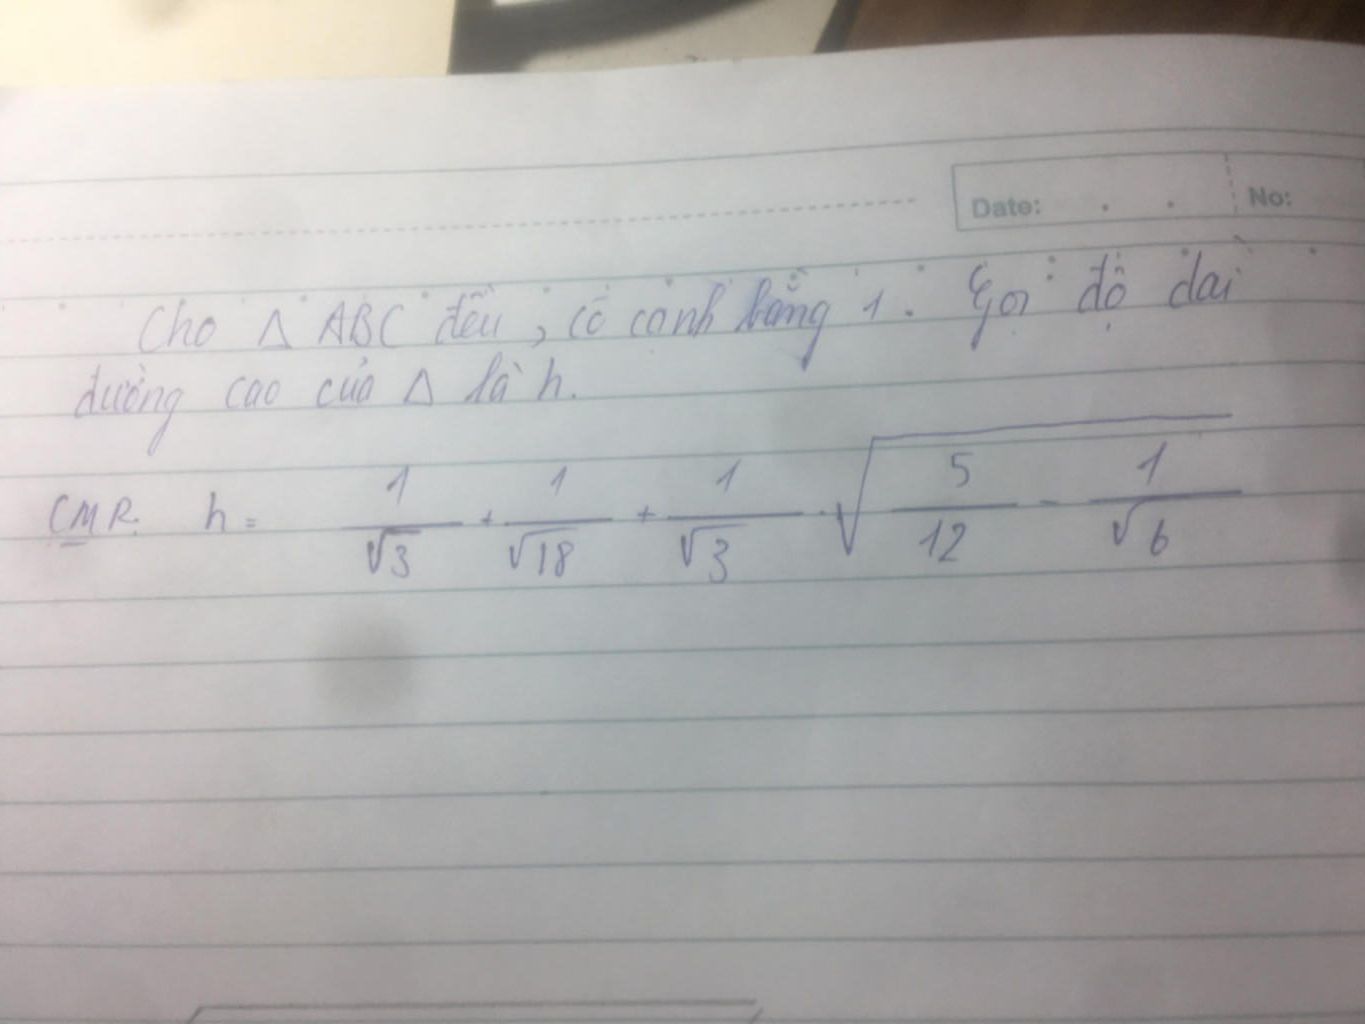 Date: . . No:
Cho Δ ABC đều, có cạnh bằng 1. Gọi độ dài
đường cao của Δ là h.
CMR: h = 1/√3 + 1/√18 + 1/√3 . √(5/12 - 1/√6)